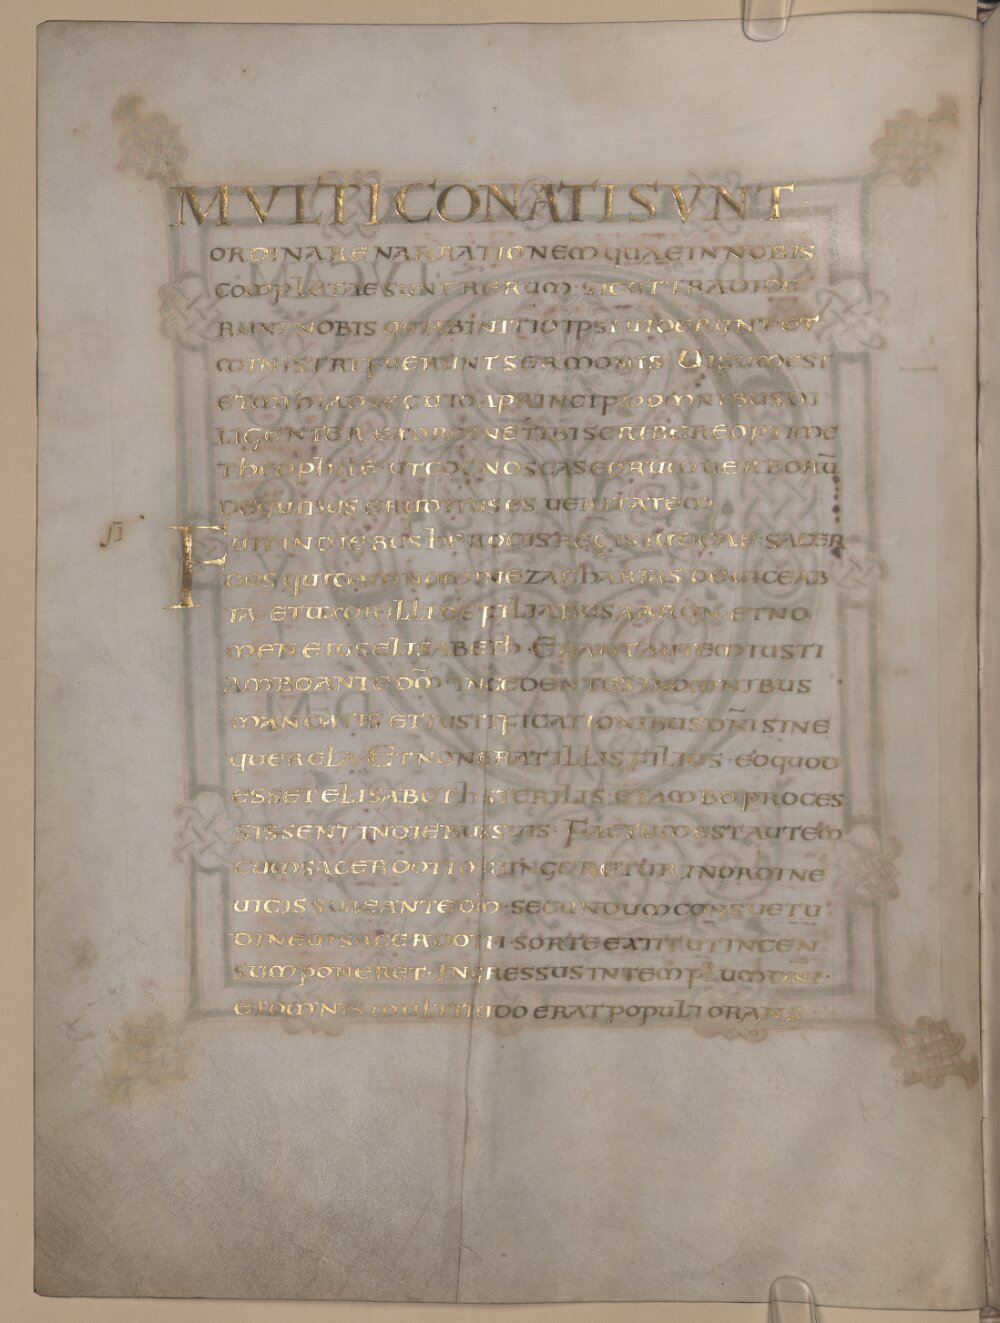 MULTI CONATI SUNT
ORDINARE NARRATIONEM QUAE IN NOBIS
COMPLETAE SUNT RERUM· SICUT TRADIDE
RUNT NOBIS QUI AB INITIO IPSI UIDERUNT ET
MINISTRI FUERUNT SERMONIS UISUM EST
ET MIHI ADSECUTO A PRINCIPIO OMNIBUS DI
LIGENTER EX ORDINE TIBI SCRIBERE OPTIME
THEOPHILE· UT COGNOSCAS EORUM UERBORŪ
DE QUIBUS ERUDITUS ES UERITATEM·
FUIT IN DIEBUS HERODIS REGIS IUDEAE· SACER
DOS QUIDAM NOMINE ZACHARIAS DE UICE AB
IA· ET UXOR ILLI DE FILIABUS AARON· ET NO
MEN EIUS ELISABETH· ERANT AUTEM IUSTI
AMBO ANTE DM̄· INCEDENTES IN OMNIBUS
MANDATIS ET IUSTIFICATIONIBUS DN̄I SINE
QUERELA ET NON ERAT ILLIS FILIUS· EO QUOD
ESSET ELISABETH STERILIS· ET AMBO PROCES
SISSENT IN DIEBUS SUIS· FACTUM EST AUTEM
CUM SACERDOTIO FUNGERETUR IN ORDINE
UICIS SUAE ANTE DM̄· SECUNDUM CONSUETU
DINEM SACERDOTII· SORTE EXIIT UT INCEN
SUM PONERET· INGRESSUS IN TEMPLUM DN̄I·
ET OMNIS MULTITUDO ERAT POPULI ORANS